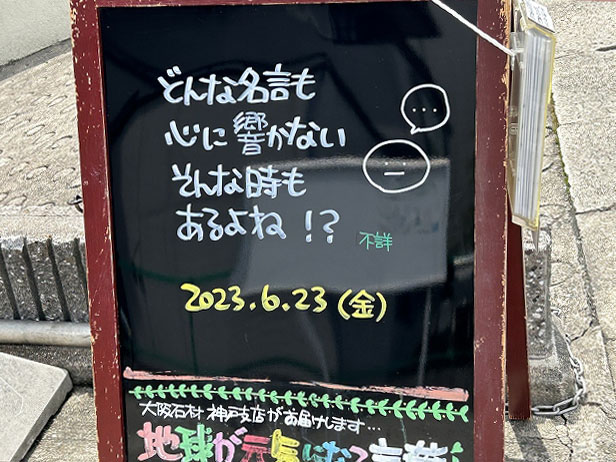 どんな名言も
心に響かない
そんな時も
あるよね!?
不詳
...
2023.6.23(金)
大阪石材 神戸支店がお届けします…
地球が元気になる言葉